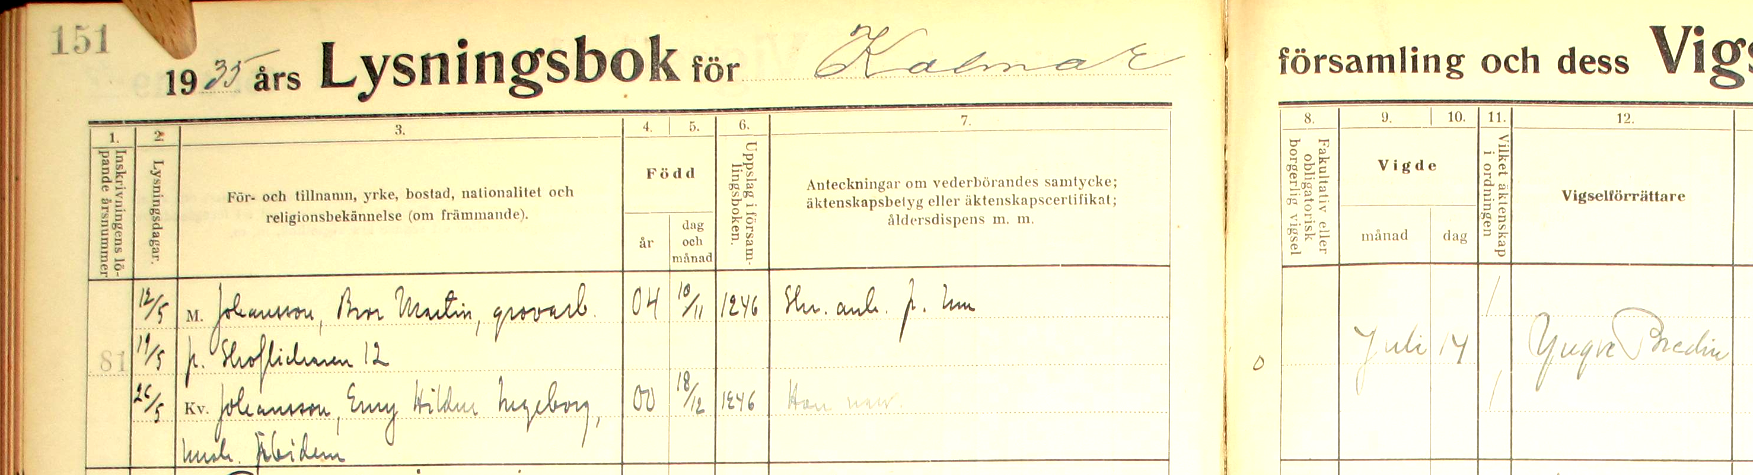 151
1935 års Lysningsbok för Kalmar
församling och dess Vigs
1. 2. 3. 4. 5. 6. 7. 8. 9. 10. 11. 12.
Inskrivningens lö-
pande årsnummer
Lysningsdagar.
För- och tillnamn, yrke, bostad, nationalitet och
religionsbekännelse (om främmande).
Född
år
dag
och
månad
Uppslag i försam-
lingsboken.
Anteckningar om vederbörandes samtycke;
äktenskapsbetyg eller äktenskapscertifikat;
åldersdispens m. m.
Fakultativ eller
obligatorisk
borgerlig vigsel
Vigde
månad
dag
Vilket äktenskap
i ordningen
Vigselförrättare
12/5 M. Johansson, Bror Martin, grovarb. 04 10/11 1246
81 19/5 12
Juli 14 Yngve
26/5 Kv. Johansson, Emy Hildur Ingeborg, 00 18/12 1246
ibidem